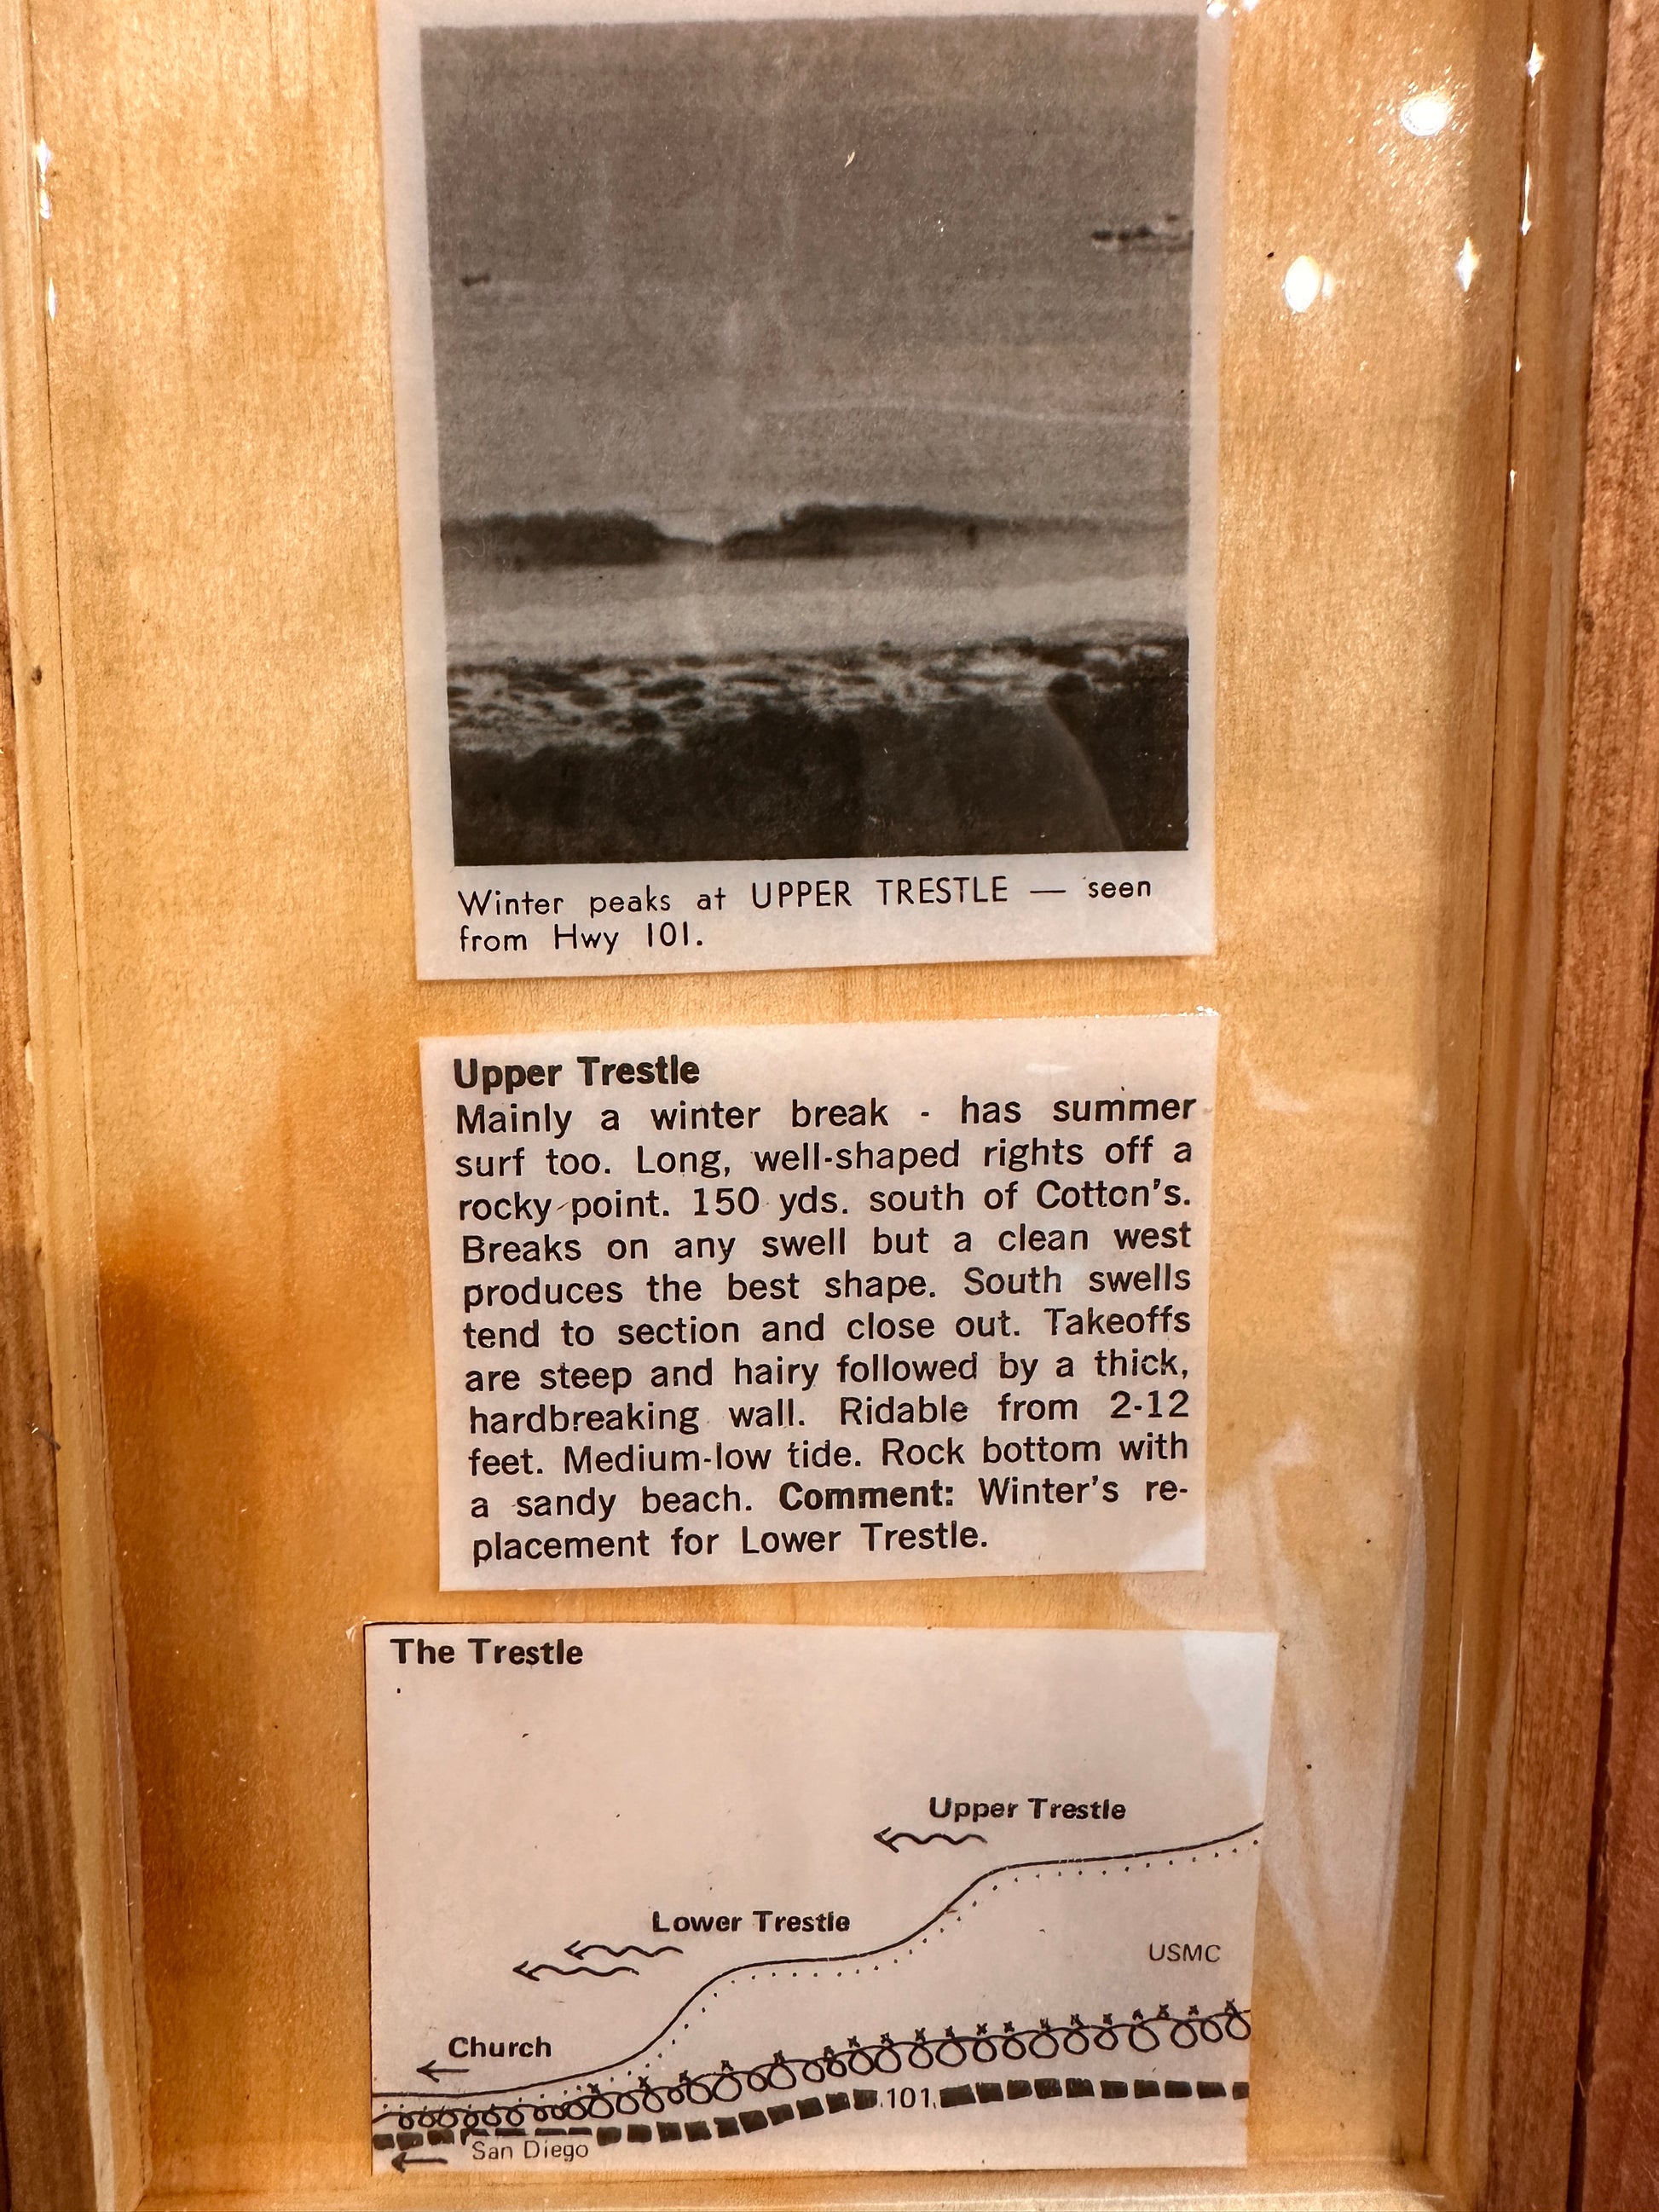 Winter peaks at UPPER TRESTLE — seen
from Hwy 101.
Upper Trestle
Mainly a winter break - has summer
surf too. Long, well-shaped rights off a
rocky point. 150 yds. south of Cotton's.
Breaks on any swell but a clean west
produces the best shape. South swells
tend to section and close out. Takeoffs
are steep and hairy followed by a thick,
hardbreaking wall. Ridable from 2-12
feet. Medium-low tide. Rock bottom with
a sandy beach. Comment: Winter's re-
placement for Lower Trestle.
The Trestle
Upper Trestle
Lower Trestle
USMC
Church
101
San Diego